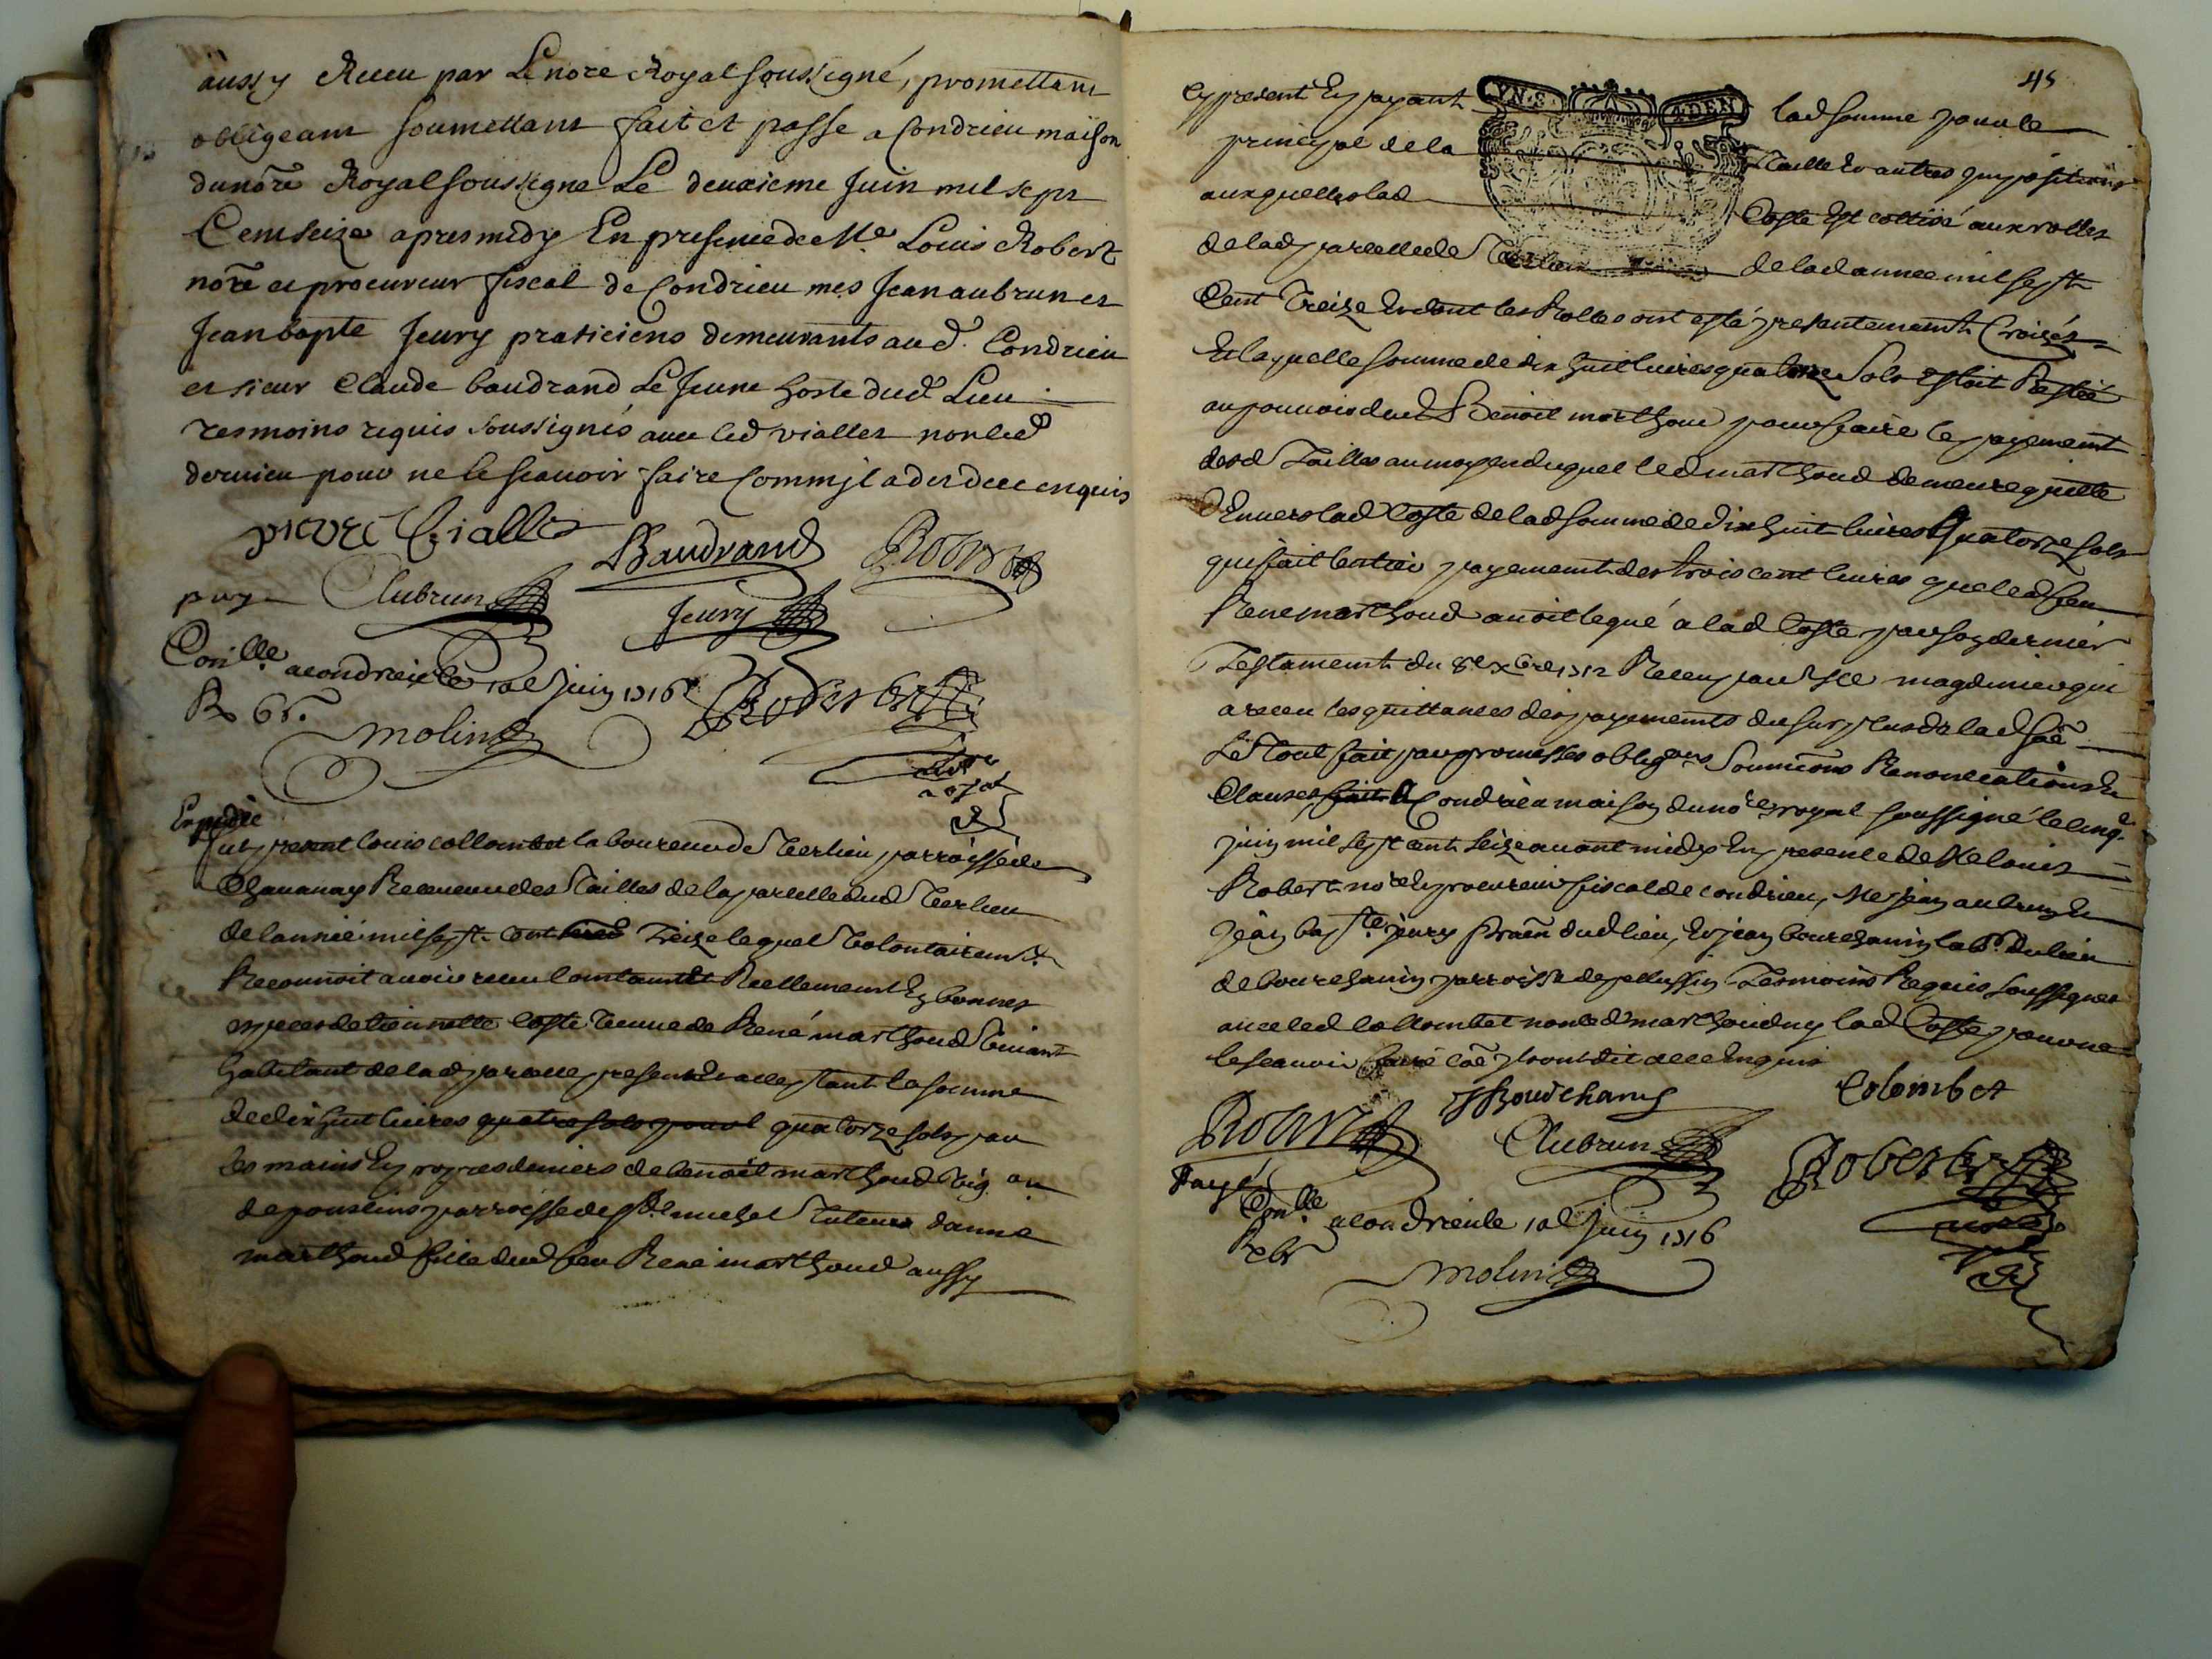 aussy Receu par Le nore Royal soussigné, promettant
obligeant soumettant fait et passe a Condrieu maison
du nore Royal soussigne Le deuxieme Juin mil sept
Cent seize apres midy En presence de Me Louis Robert
nore et procureur fiscal de Condrieu mes Jean aubrun et
Jean bapte Jeury praticiens demeurants aud. Condrieu
et sieur Claude baudrand Le Jeune hoste dud Lieu
tesmoins requis soussignés avec led viallet non led
dervieu pour ne le scavoir faire Comm jl a dit de ce enquis
pierre Viallet
Baudrand
Robert
puy
Aubrun
Jeury
Conlle a condrieu le 10e Juin 1716
R 6s.
molin
Robert
nore
royal
Expedié
fut present louis collombet laboureur de Verlieu parroisse de
Chavanay Receveur des Tailles de la parcelle dud Verlieu
de lannée mil sept cent treize lequel volontairemt
Reconnoit avoir receu comtamt et Reellement En bonnes
especes de Coste veuve de René marthoud vivant
habitant de lad parcelle presente et acceptant la somme
de dix huit livres quatre sols pour quatorze sols par
les mains En propres deniers de benoit marthoud vig on
de parroisse de St michel Tuteur danne
marthoud fille dud feu René marthoud aussy
45
Cy present En payant lad somme pour le
principal de la Taille et autres jmpositions
auxquelles lad Coste Est cottisé aux rolles
de lad parcelle de Verlieu de lad annee mil sept
Cent Treize Et dont les Rolles ont esté presentement Croisés
Et laquelle somme de dix huit livres quatorze Sols estoit Restée
au pouvoir dud Benoit marthoud pour faire le payement
desd Tailles au moyen duquel led marthoud demeure quitte
Envers lad Coste de lad somme de dix huit livres Quatorze sols
qui fait lentier payement des trois cent livres que led feu
Rene marthoud avoit legué a lad Coste par son dernier
Testament du 8e xbre 1712 Receu par Me magdinier qui
a receu les quittances des payements du surplus de lad soe
Le Tout fait par promesses obligons Soumions Renonciations Et
Clauses fait A Condrieu maison du nore royal soussigné le cinqe
juin mil sept cent seize avant midy En presence de Me louis
Robert nore Et procureur fiscal de condrieu, Me jean aubrun Et
jean bapte jeury praen dud lieu, Et jean bourchanin labr du lieu
de bourchanin parroisse de pellussin Tesmoins Requis soussignes
avec led Collombet non led marthoud ny lad Coste pour ne
le scavoir faire coe jls ont dit de ce Enquis
Robert
JBourchanin
Colombet
Aubrun
Robert
Payé
Conlle a condrieu le 10e juin 1716
R 6s
molin